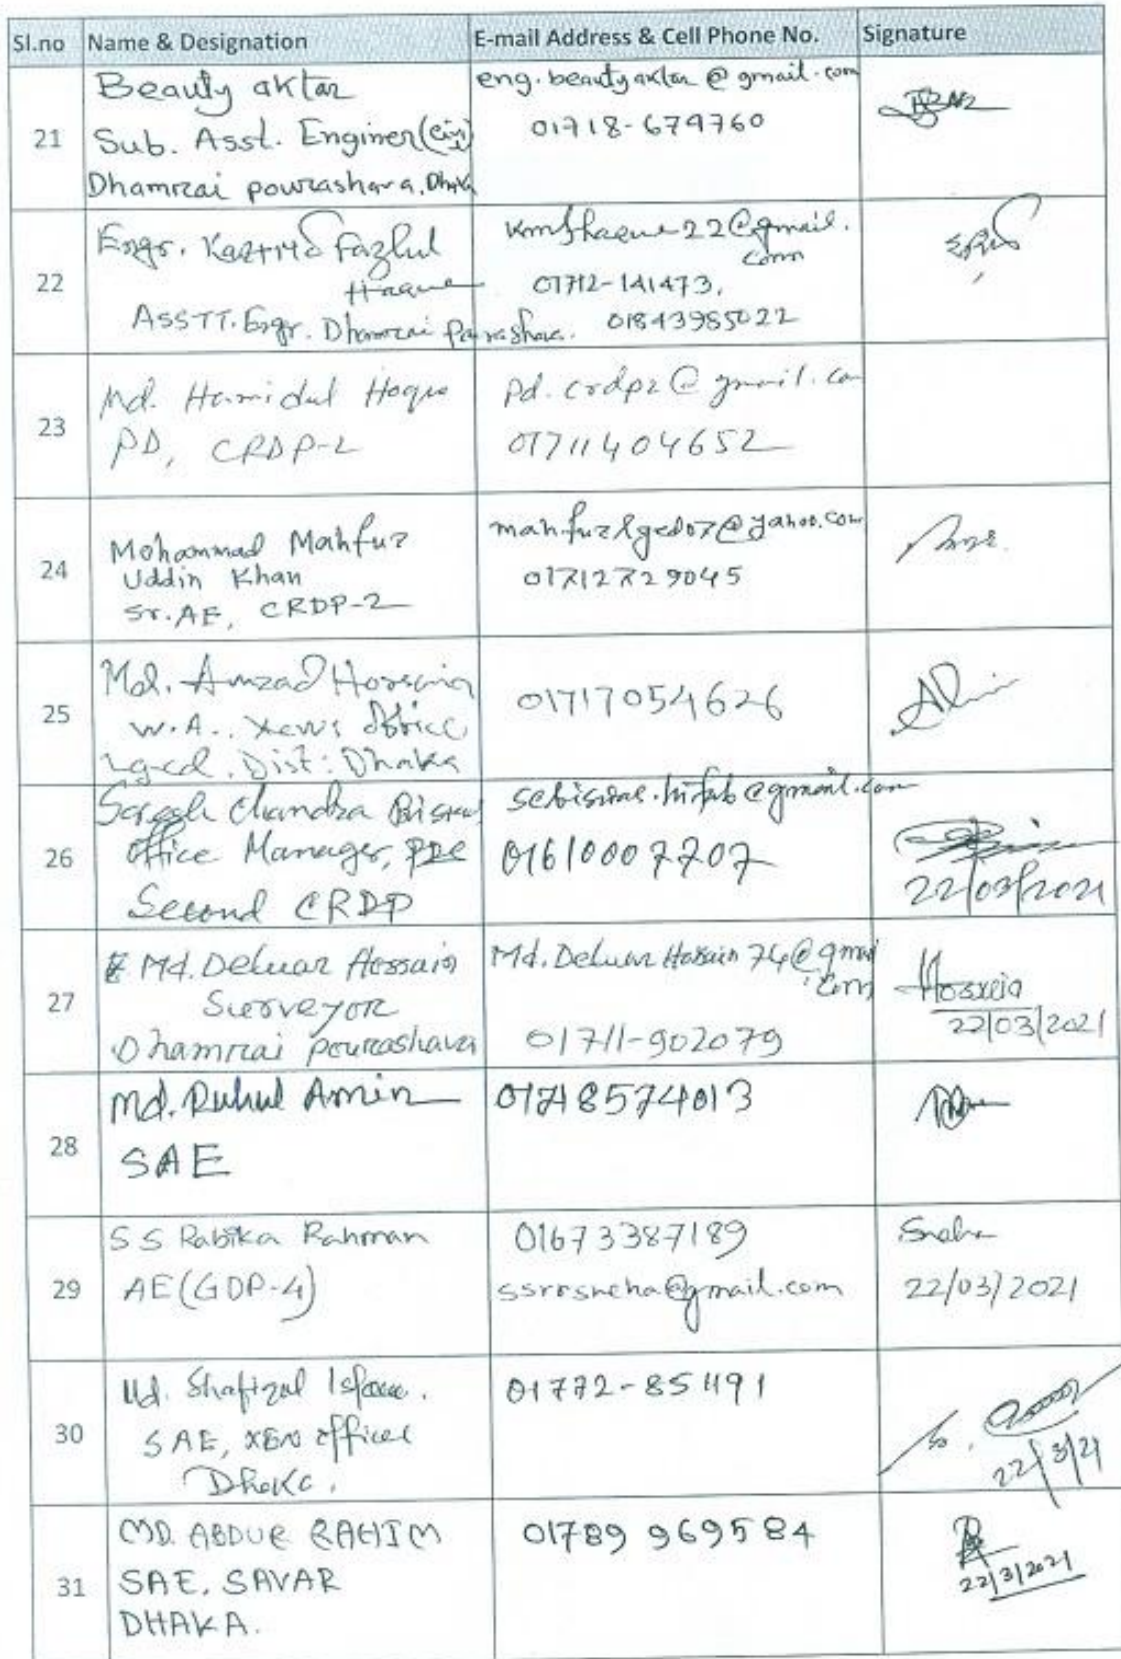 Sl.no Name & Designation E-mail Address & Cell Phone No. Signature
21
Beauty aktar
Sub. Asst. Enginer (Civil)
Dhamrai pourashava, Dhaka
eng.beautyaktar@gmail.com
01718-679760
22
Engr. Fazlul
Haque
ASSTT. Engr. Dhamrai Pourashava.
kmfhaque22@gmail.
com
01712-141473,
01843985022
23
Md. Hamidul Hoque
PD, CRDP-2
pd.crdp2@gmail.com
01711404652
24
Mohammad Mahfuz
Uddin Khan
Sr.AE, CRDP-2
mahfuzlged07@yahoo.com
01712729045
25
Md. Amzad Hossain
W.A., office
Lged, Dist: Dhaka
01717054626
26
Chandra Biswas
Office Manager,
Second CRDP
scbiswas.hifab@gmail.com
01610007707
22/03/2021
27
Md. Deluar Hossain
Surveyor
Dhamrai pourashava
Md.Deluar Hossain 74@gmail
.com
01711-902079
Hossain
22/03/2021
28
Md. Ruhul Amin
SAE
01718574013
29
S S Rabika Rahman
AE (GDP-4)
01673387189
ssrrsneha@gmail.com
Sneha
22/03/2021
30
Md. Shafizul Islam.
SAE, XEN office
Dhaka.
01772-85491
22/3/21
31
MD. ABDUR RAHIM
SAE, SAVAR
DHAKA.
01789 969584
22/3/2021